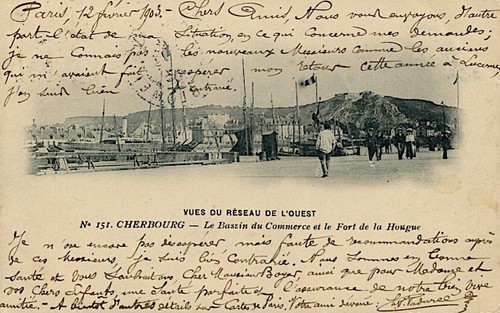 Paris, 12 février 1903. - Chers Amis, Nous vous envoyons, d'autre
part l'état de ma Situation, en ce qui concerne mes demandes;
je ne connais pas les nouveaux Messieurs comme les anciens
qui m'avaient fait espérer mon retour cette année à Lucerne
j'en suis bien contrarié.
VUES DU RÉSEAU DE L'OUEST
No 151. CHERBOURG — Le Bassin du Commerce et le Fort de la Hougue
Je n'ose encore pas désespérer mais faute de recommandations auprès
de ces Messieurs, je suis bien Contrarié. Nous Sommes en bonne
Santé et Vous Souhaitons, Cher Monsieur Boyer, ainsi que pour Madame et
vos Chers Enfants, une Santé parfaite et l'assurance de notre très vive
amitié. - A bientôt d'autres détails sur Cartes de Paris, Votre ami dévoué;